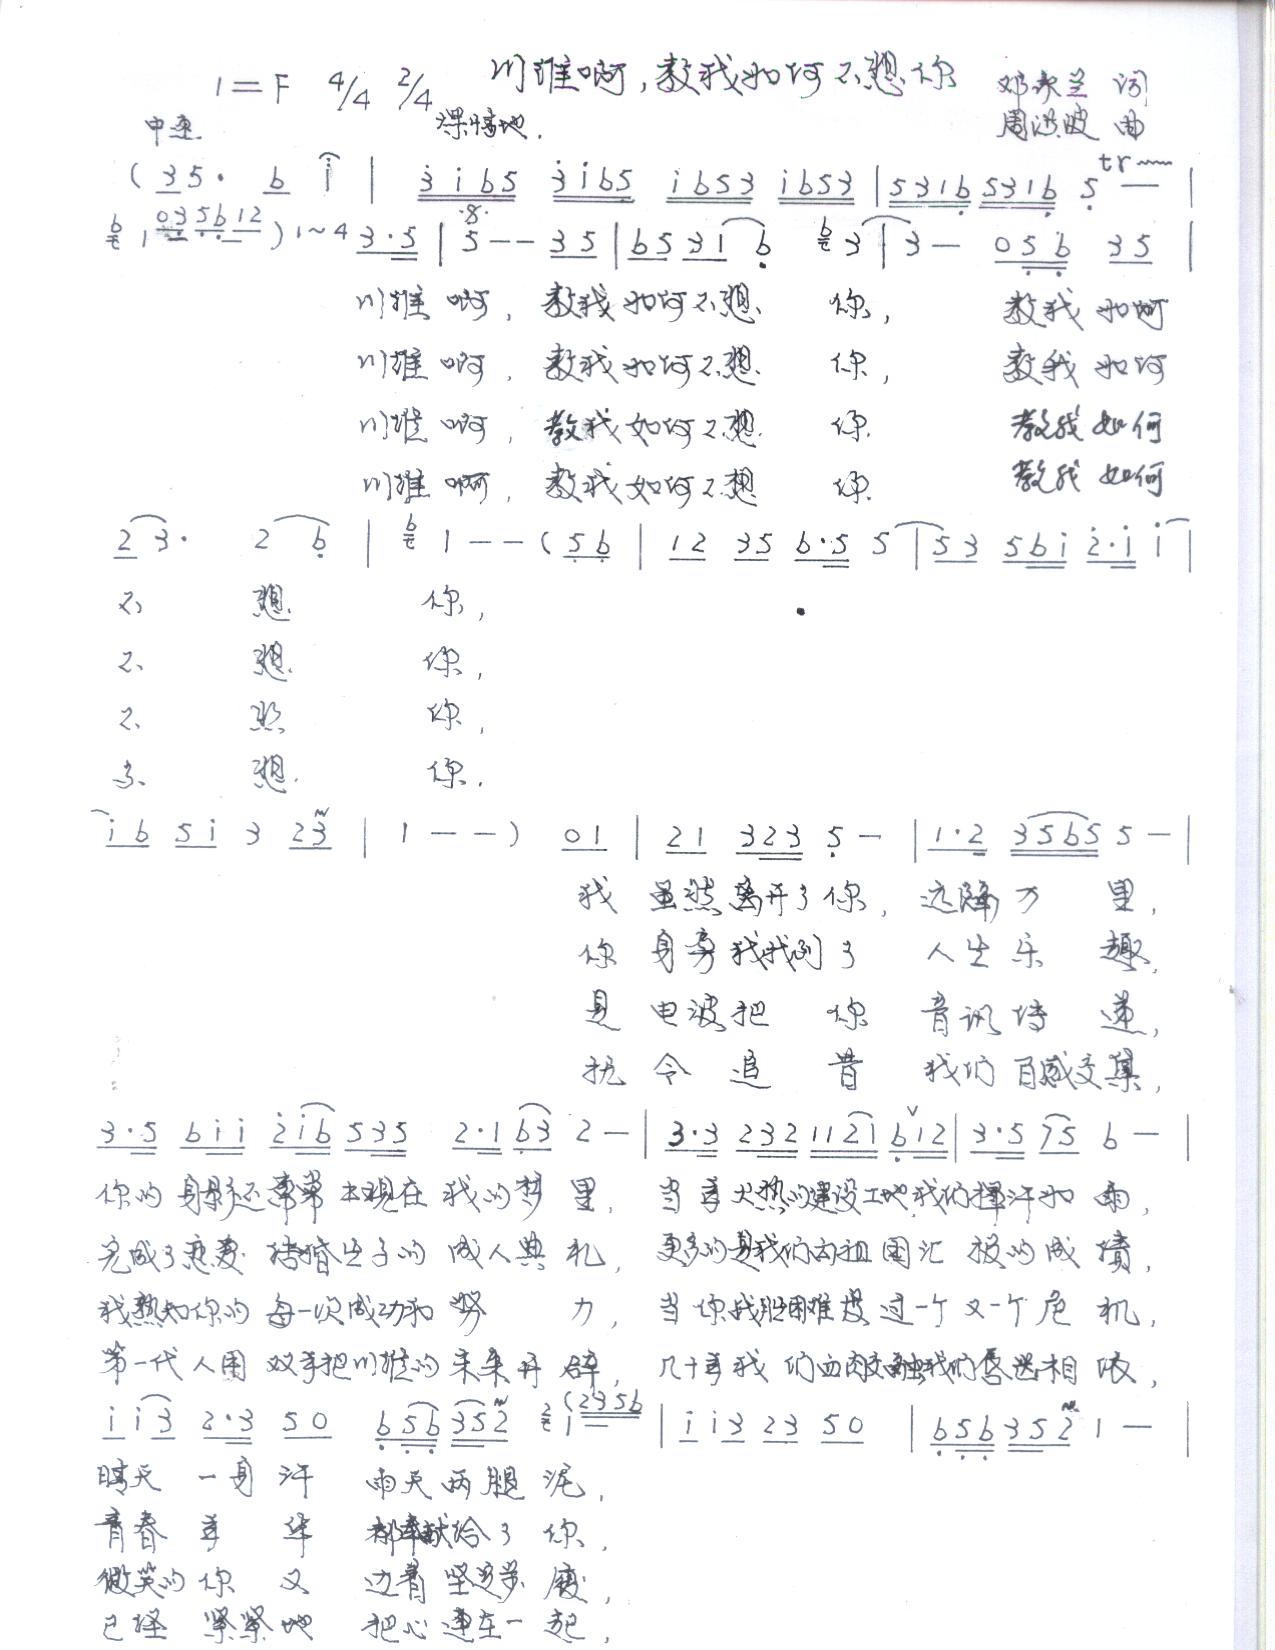 川维啊，教我如何不想你
1=F 4/4 2/4
邓永兰 词
中速 深情地.
周洪波 曲
(3 5· 6 i | 3 i 6 5 3 i 6 5 i 6 5 3 i 6 5 3 | 5 3 1 6 5 3 1 6 5 tr — |
6 1 0 3 5 6 1 2 ) 1~4 3·5 | 5 — — 3 5 | 6 5 3 1 6 6 3 | 3 — 0 5 6 3 5 |
川维 啊，教我如何不想 你，教我如何
川维 啊，教我如何不想 你，教我如何
川维 啊，教我如何不想 你. 教我如何
川维 啊，教我如何不想 你. 教我如何
2 3· 2 6 | 6 1 — — ( 5 6 | 1 2 3 5 6·5 5 | 5 3 5 6 i 2·i i |
不 想 你，
不 想 你，
不 想 你，
不 想 你.
i 6 5 i 3 2 3 | 1 — — ) 0 1 | 2 1 3 2 3 5 — | 1·2 3 5 6 5 5 — |
我 虽然离开了你，远隔万里，
你 身旁我找到了 人生乐趣，
是 电波把 你 音讯传递，
抚 今 追 昔 我们百感交集，
3·5 6 i i 2 i 6 5 3 5 2·1 6 3 2 — | 3·3 2 3 2 1 1 2 1 6 1 2 | 3·5 7 5 6 — |
你的身影还常常出现在我的梦里，当年火热的建设工地我们挥汗如雨，
完成了恋爱 结婚生子的 成人典礼，更多的是我们向祖国汇报的成绩，
我熟知你的 每一次成功和努力，当你战胜困难度过一个又一个危机，
第一代人用双手把川维的未来开辟，几十年我们血肉交融我们唇齿相依，
i i 3 2·3 5 0 6 5 6 3 5 2 2 1 — (2 3 5 6 | i i 3 2 3 5 0 | 6 5 6 3 5 2 1 — |
晴天 一身 汗 雨天两腿泥，
青春 年 华 都奉献给了你，
微笑的你 又 迈着坚定步履，
已经 紧紧地 把心连在一起，